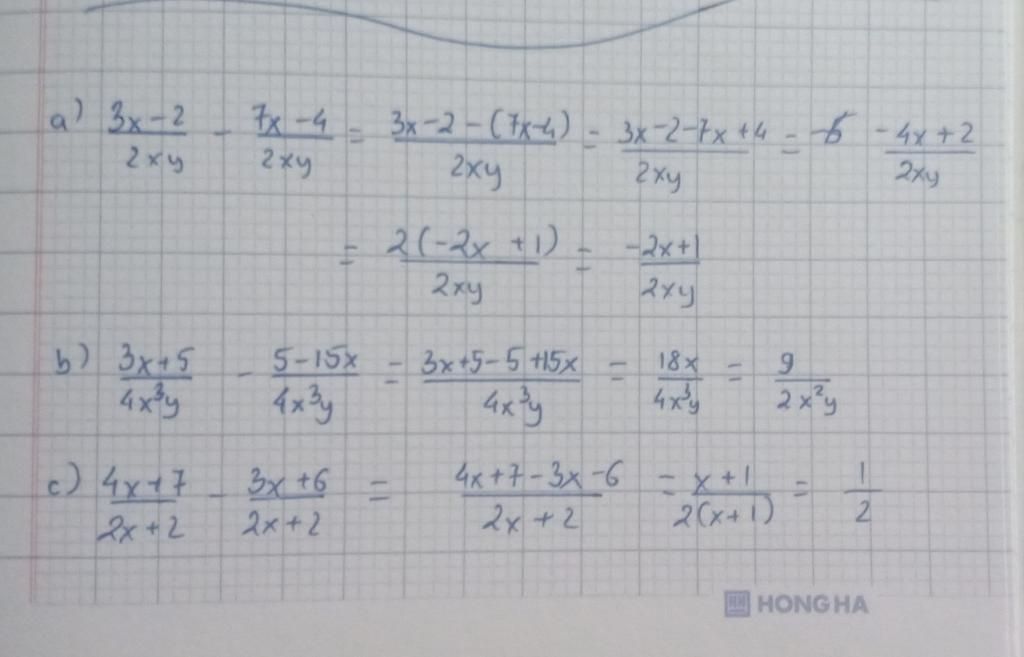 a) (3x-2)/(2xy) - (7x-4)/(2xy) = (3x-2-(7x-4))/(2xy) = (3x-2-7x+4)/(2xy) = (-4x+2)/(2xy)
= (2(-2x+1))/(2xy) = (-2x+1)/(2xy)
b) (3x+5)/(4x³y) - (5-15x)/(4x³y) = (3x+5-5+15x)/(4x³y) = (18x)/(4x³y) = 9/(2x²y)
c) (4x+7)/(2x+2) - (3x+6)/(2x+2) = (4x+7-3x-6)/(2x+2) = (x+1)/(2(x+1)) = 1/2
HONG HA